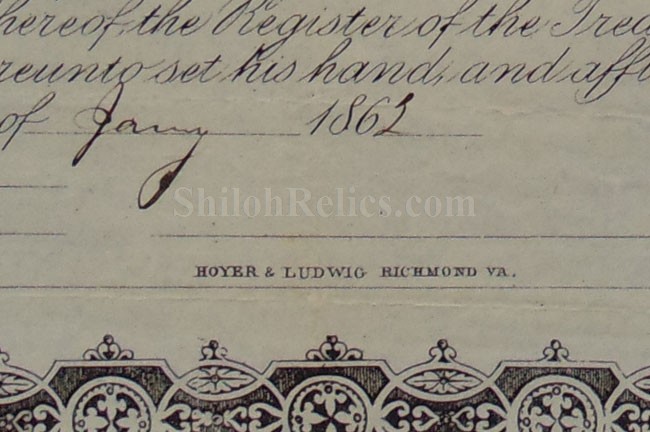 hereof, the Register of the Trea
reunto set his hand, and aff
of Jany 1862
ShilohRelics.com
HOYER & LUDWIG RICHMOND VA.